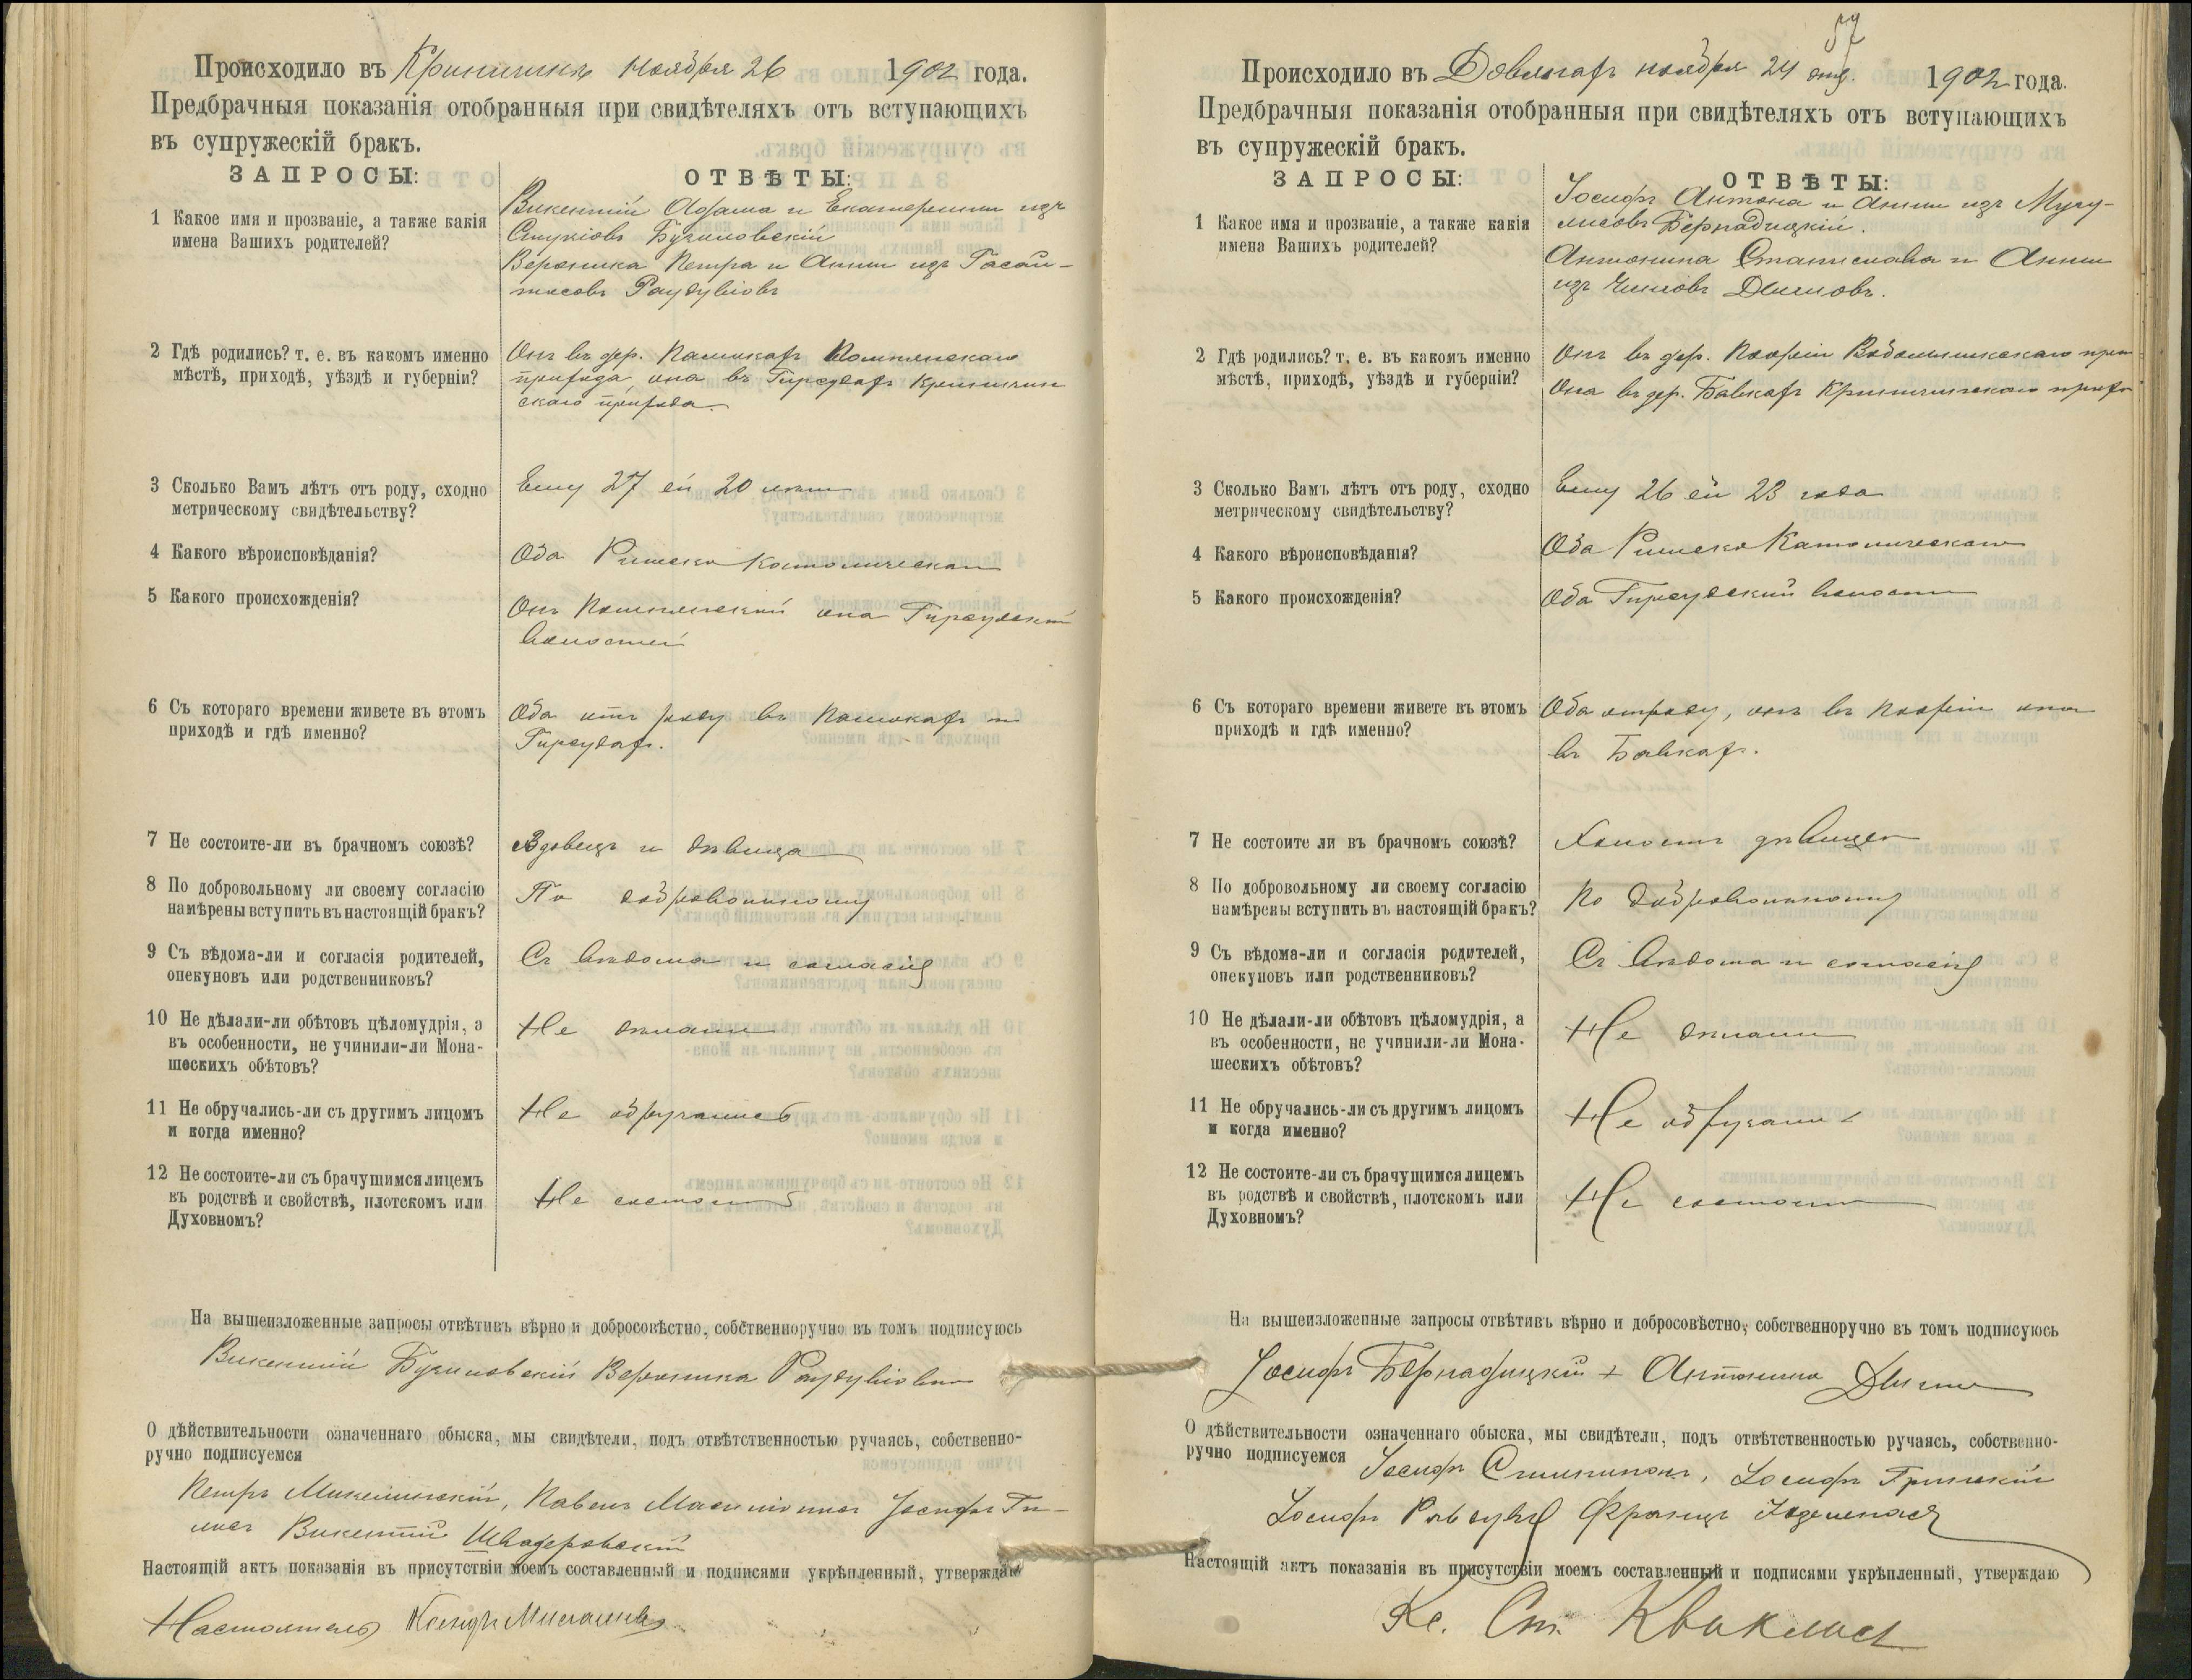 Происходило въ Криничинъ ноября 26 1902 года.
Предбрачныя показанія отобранныя при свидѣтеляхъ отъ вступающихъ
въ супружескій бракъ.
ЗАПРОСЫ: ОТВѢТЫ:
1 Какое имя и прозваніе, а также какія
имена Вашихъ родителей?
Викентій Адама и Екатерины изъ
Бучиловскій
Вероника Петра и Анны изъ
2 Гдѣ родились? т. е. въ какомъ именно
мѣстѣ, приходѣ, уѣздѣ и губерніи?
Онъ въ дер.
прихода она въ Гирсудахъ Криничин
скаго прихода.
3 Сколько Вамъ лѣтъ отъ роду, сходно
метрическому свидѣтельству?
Ему 27 ей 20 лѣтъ
4 Какого вѣроисповѣданія?
Оба Римско Католическаго
5 Какого происхожденія?
Онъ она Гирсудской
волостей
6 Съ котораго времени живете въ этомъ
приходѣ и гдѣ именно?
Оба отъ роду въ и
Гирсудахъ.
7 Не состоите-ли въ брачномъ союзѣ?
Вдовецъ и дѣвица
8 По добровольному ли своему согласію
намѣрены вступить въ настоящій бракъ?
По добровольному
9 Съ вѣдома-ли и согласія родителей,
опекуновъ или родственниковъ?
Съ вѣдома и согласія
10 Не дѣлали-ли обѣтовъ цѣломудрія, а
въ особенности, не учинили-ли Мона-
шескихъ обѣтовъ?
Не дѣлали
11 Не обручались-ли съ другимъ лицомъ
и когда именно?
Не обручались
12 Не состоите-ли съ брачущимся лицемъ
въ родствѣ и свойствѣ, плотскомъ или
Духовномъ?
Не состоимъ
На вышеизложенные запросы отвѣтивъ вѣрно и добросовѣстно, собственноручно въ томъ подписуюсь
Викентій Бучиловскій Вероника
О дѣйствительности означеннаго обыска, мы свидѣтели, подъ отвѣтственностью ручаясь, собственно-
ручно подписуемся
Петръ Павелъ Іосифъ
Викентій
Настоящій актъ показанія въ присутствіи моемъ составленный и подписями укрѣпленный, утверждаю
Настоятель
57
Происходило въ ноября 24 дня 1902 года.
Предбрачныя показанія отобранныя при свидѣтеляхъ отъ вступающихъ
въ супружескій бракъ.
ЗАПРОСЫ: ОТВѢТЫ:
1 Какое имя и прозваніе, а также какія
имена Вашихъ родителей?
Іосифъ Антона и Анны изъ
Бернадицкій.
Антонина Станислава и Анны
изъ
2 Гдѣ родились? т. е. въ какомъ именно
мѣстѣ, приходѣ, уѣздѣ и губерніи?
Онъ въ дер.
Она въ дер. Бавкахъ Криничинскаго
3 Сколько Вамъ лѣтъ отъ роду, сходно
метрическому свидѣтельству?
Ему 26 ей 23 года
4 Какого вѣроисповѣданія?
Оба Римско Католическаго
5 Какого происхожденія?
Оба Гирсудской волости
6 Съ котораго времени живете въ этомъ
приходѣ и гдѣ именно?
Оба отроду, онъ въ она
въ Бавкахъ.
7 Не состоите ли въ брачномъ союзѣ?
Холостъ дѣвица
8 По добровольному ли своему согласію
намѣрены вступить въ настоящій бракъ?
По добровольному
9 Съ вѣдома-ли и согласія родителей,
опекуновъ или родственниковъ?
Съ вѣдома и согласія
10 Не дѣлали-ли обѣтовъ цѣломудрія, а
въ особенности, не учинили-ли Мона-
шескихъ обѣтовъ?
Не дѣлали
11 Не обручались-ли съ другимъ лицомъ
и когда именно?
Не обручались
12 Не состоите-ли съ брачущимся лицемъ
въ родствѣ и свойствѣ, плотскомъ или
Духовномъ?
Не состоимъ
На вышеизложенные запросы отвѣтивъ вѣрно и добросовѣстно, собственноручно въ томъ подписуюсь
Іосифъ Бернадицкій + Антонина
О дѣйствительности означеннаго обыска, мы свидѣтели, подъ отвѣтственностью ручаясь, собственно-
ручно подписуемся Іосифъ Іосифъ
Іосифъ Францъ
Настоящій актъ показанія въ присутствіи моемъ составленный и подписями укрѣпленный, утверждаю
Кс. Ст.